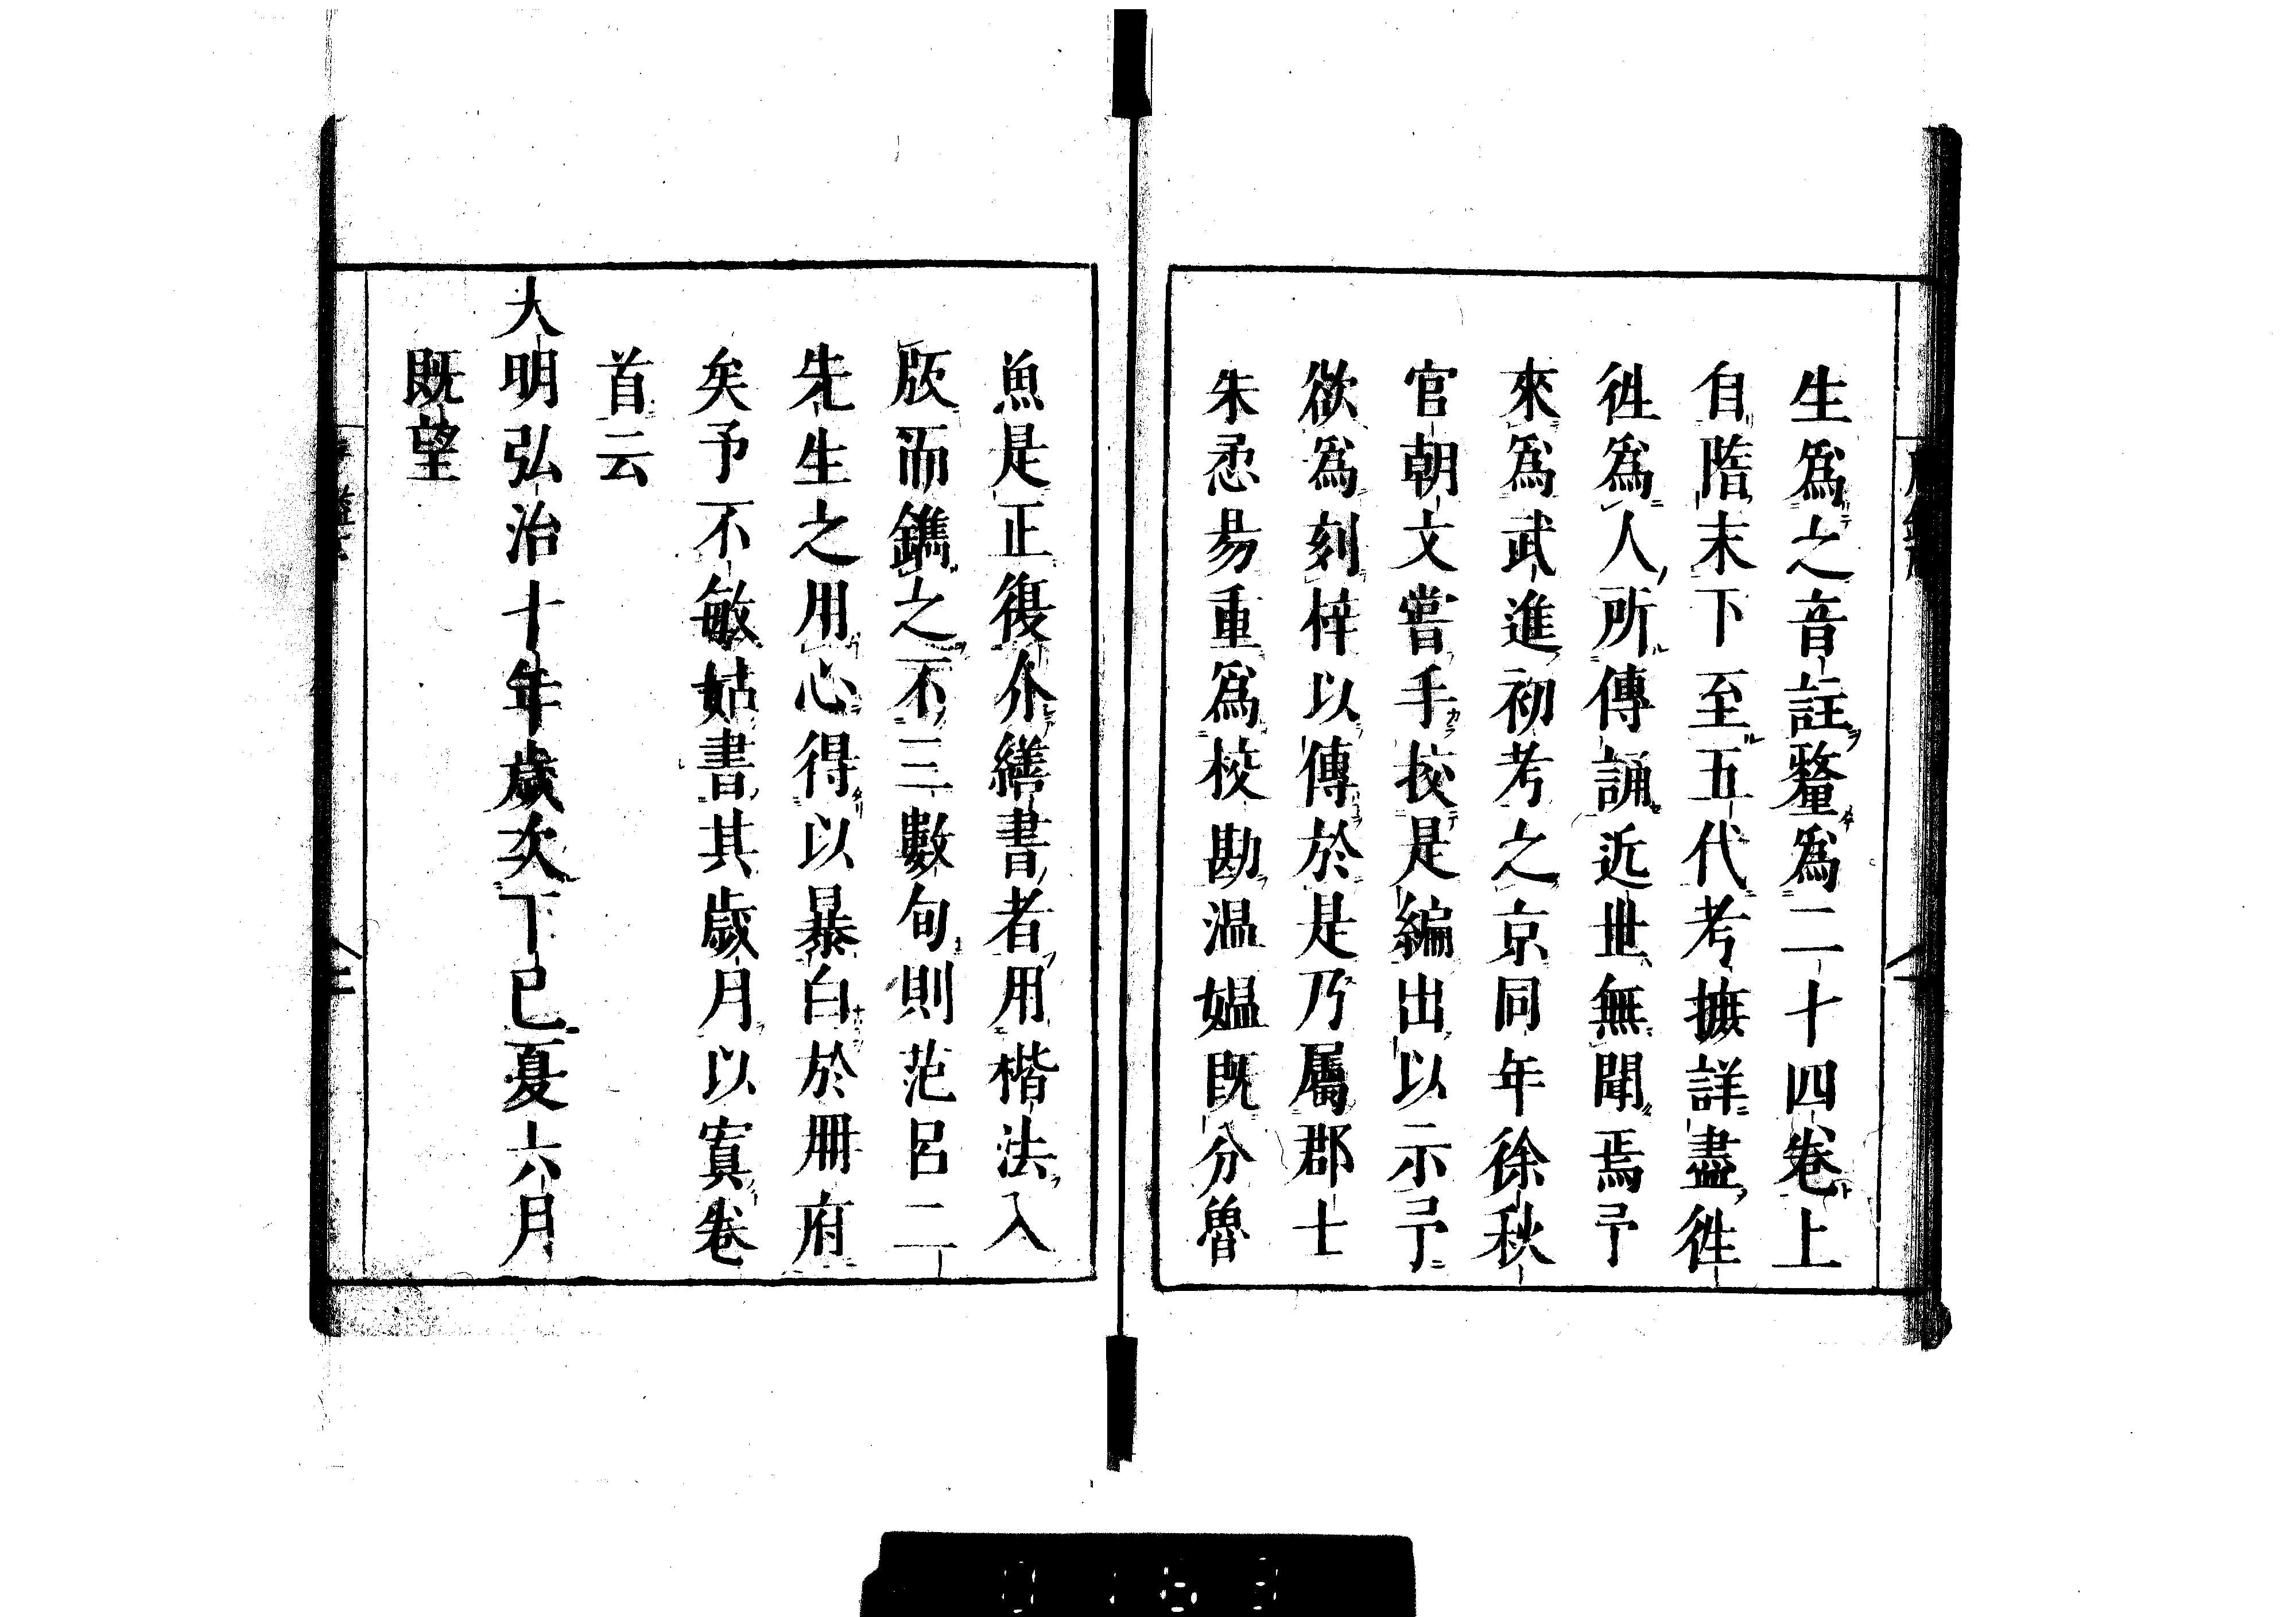 生爲之音註釐爲二十四卷上
自隋末下至五代考摭詳盡徃
徃爲人所傳誦近世無聞焉予
來爲武進初考之京同年徐秋
官朝文嘗手挍是編出以示予
欲爲刻梓以傳於是乃屬郡士
朱㤙昜重爲校勘温媼既分魯
魚是正復介繕書者用楷法入
版而鐫之不三數旬則范呂二
先生之用心得以暴白於冊府
矣予不敏姑書其歲月以寘卷
首云
大明弘治十年歲次丁巳夏六月
既望